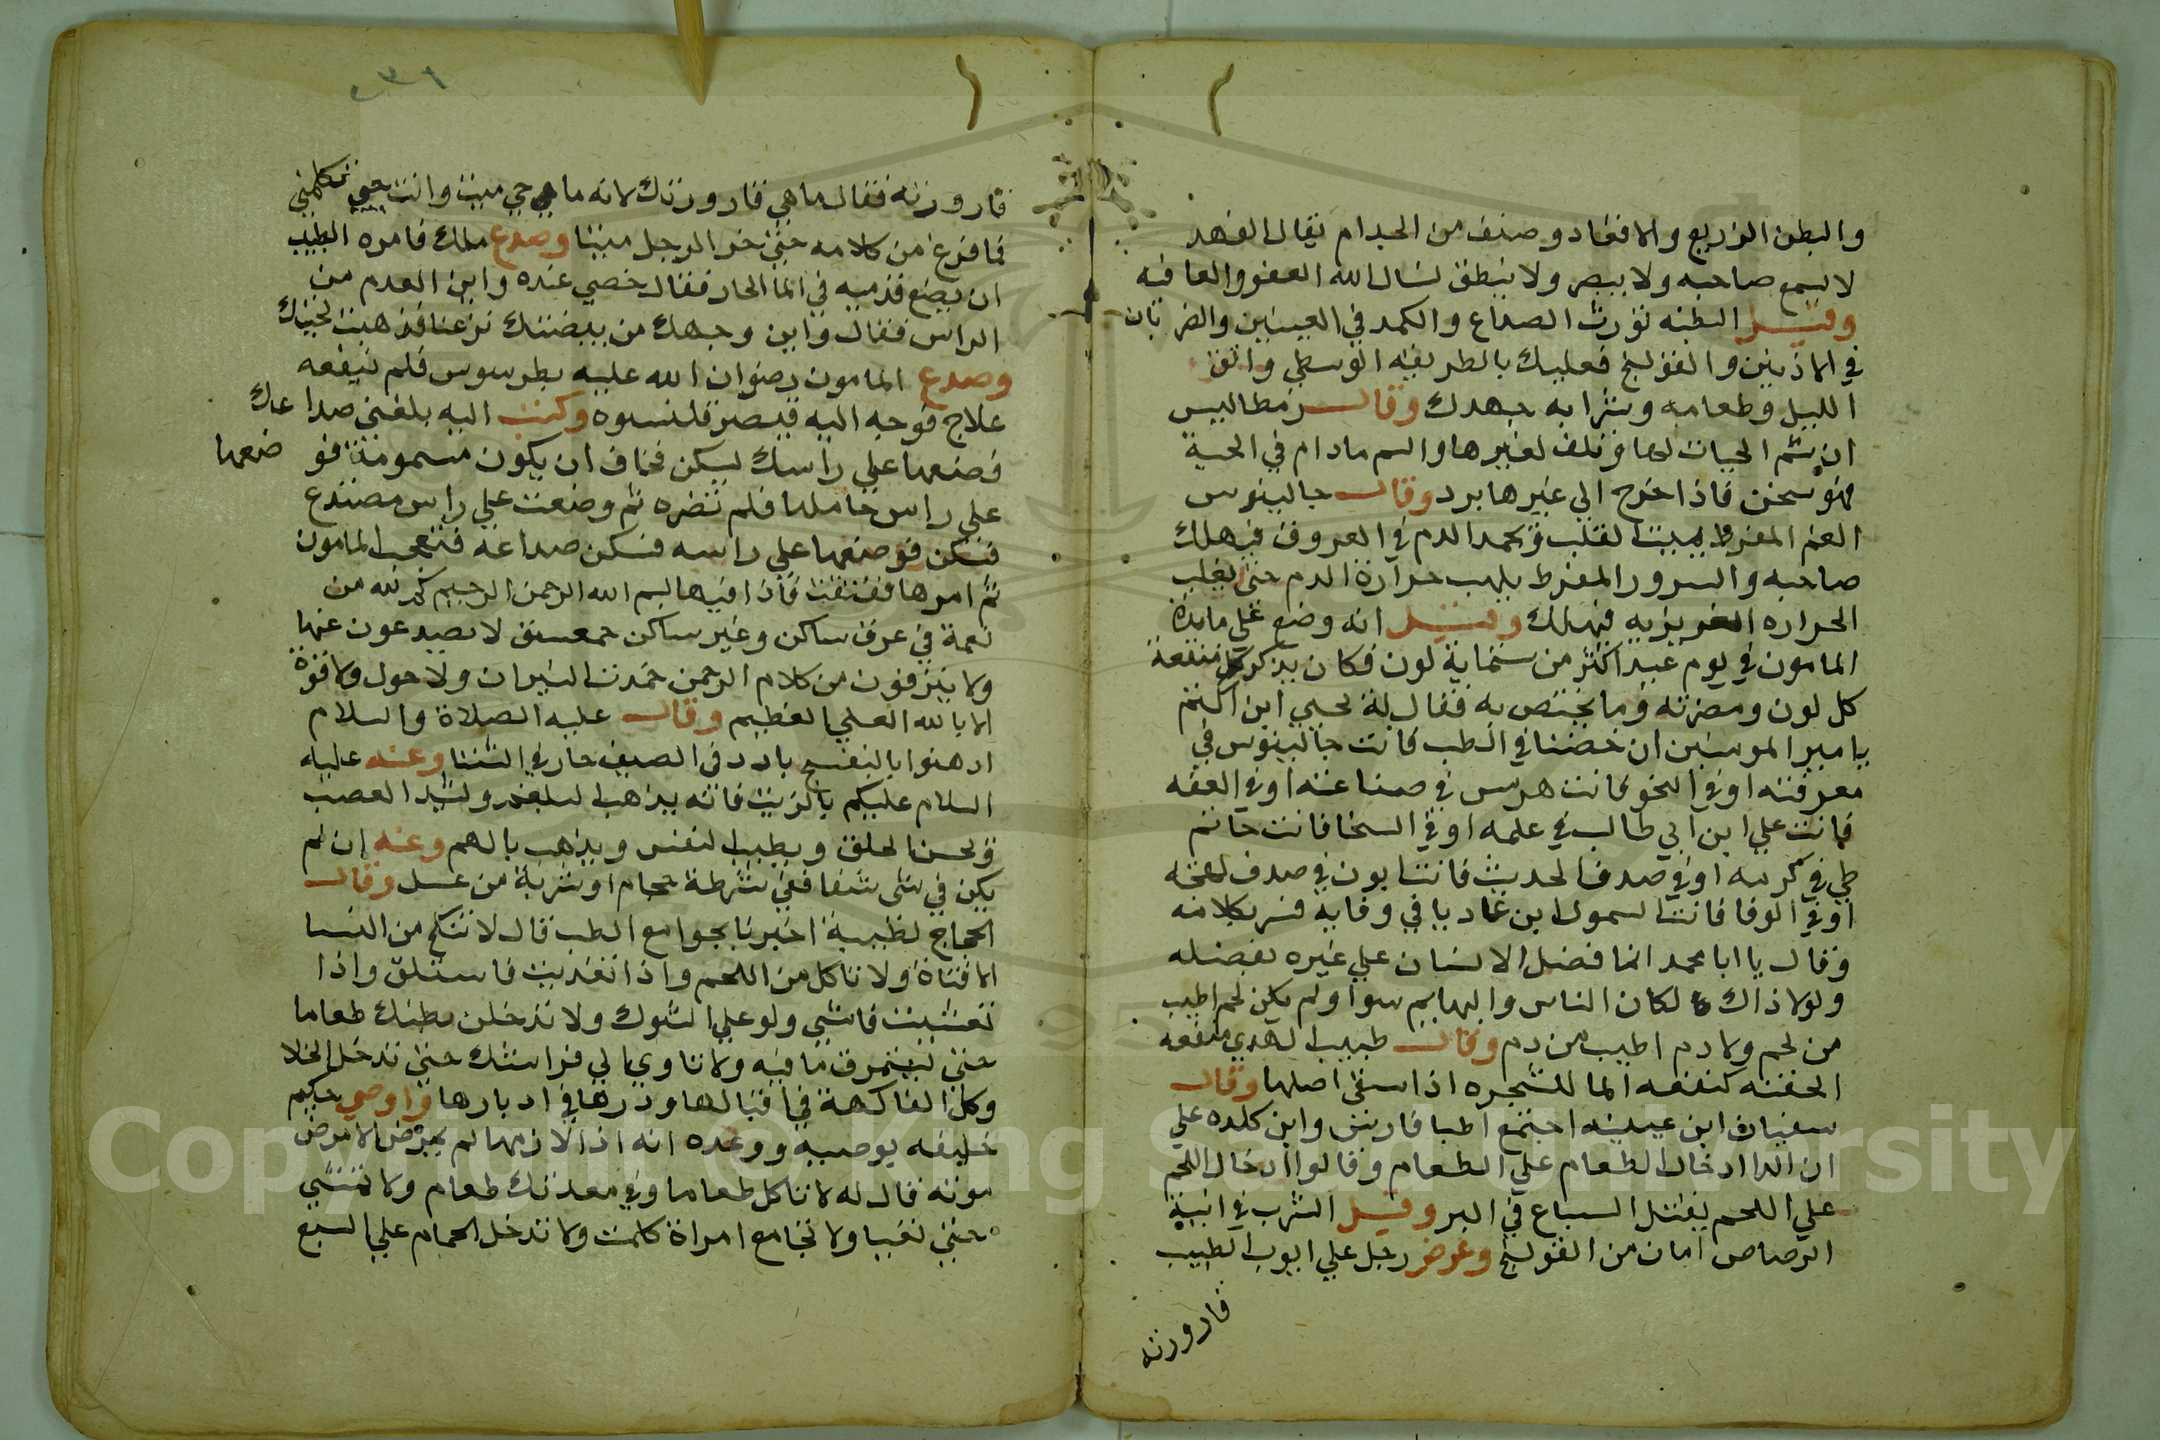 والبطن الذريع والافقاد وصنف من الجذام يقال الفهد
لا يسمع صاحبه ولا يبصر ولا ينطق نسال الله العفو والعافيه
وقيل البطنه تورث الصداع والكمد في العينين والضربان
في الاذنين والقولنج فعليك بالطريقه الوسطي واتق
الليل وطعامه وشرابه جهدك وقال
ان سم الحيات لها وتلف لغيرها والسم مادام في الحية
فهو سخن فاذا خرج الي غيرها برد وقال جالينوس
الغم المفرط يميت القلب ويجمد الدم في العروق فيهلك
صاحبه والسرور المفرط يلهب حرارة الدم حتي يغلب
الحراره الغريزيه فيهلك وقيل انه وضع علي مايدة
المامون في يوم عيد اكثر من ستماية لون فكان يذكر منفعة
كل لون ومضرته وما يختص به فقال له يحيي ابن اكثم
يا امير المومنين ان خضنا في الطب فانت جالينوس في
معرفته او في النحو فانت هرمس في صناعته او في الفقه
فانت علي ابن ابي طالب في علمه او في السخا فانت حاتم
طي في كرمه او في صدق الحديث فانت ابو ذر في صدق لهجته
او في الوفا فانت السموال ابن عاديا في وفايه فسر بكلامه
وقال يا ابا محمد انما فضل الانسان علي غيره بفضله
ولولا ذاك لكان الناس والبهايم سوا ولم يكن لحم اطيب
من لحم ولا دم اطيب من دم وقال طبيب الهدي منفعه
الحقنه كنفعه الما للشجره اذا سقي اصلها وقال
سفيان ابن عيينه اجتمع اطبا فارس وابن كلده علي
ان الدا ادخال الطعام علي الطعام وقالوا ادخال اللحم
علي اللحم يقتل السباع في البر وقيل الشرب في انية
الرصاص امان من القولنج وعرض رجل علي ايوب الطبيب
قارورته
٣١
قارورته فقال ما هي قارورتك لانه ما حي ميت وانت حي تكلمني
فما فرغ من كلامه حتي خر الرجل ميتا وصدع ملك فامره الطبيب
ان يضع قدميه في الما الحار فقال خصي عنده واين القدم من
الراس فقال واين وجهك من بيضتك نزعتا فذهبت لحيتك
وصدع المامون رضوان الله عليه بطرسوس فلم ينفعه
علاج فوجه اليه قيصر قلنسوه وكتب اليه بلغني صداعك
فضعها علي راسك ليسكن فخاف ان يكون مسمومة فوضعها
علي راس حاملها فلم تضره ثم وضعت علي راس مصدع
فسكن فوضعها علي راسه فسكن صداعه فتعجب المامون
ثم امر بها ففتقت فاذا فيها بسم الله الرحمن الرحيم كم لله من
نعمة في عرق ساكن وغير ساكن حمعسق لا يصدعون عنها
ولا ينزفون من كلام الرحمن خمدت النيران ولا حول ولا قوة
الا بالله العلي العظيم وقال عليه الصلاة والسلام
ادهنوا بالبنفسج بارد في الصيف حار في الشتا وعنه عليه
السلام عليكم بالزيت فانه يذهب البلغم ويشد العصب
ويحسن الخلق ويطيب النفس ويذهب بالهم وعنه ان لم
يكن في شي شفا ففي شرطة حجام او شربة من عسل وقال
الحجاج لطبيبه اخبرنا بجوامع الطب قال لا تنكح من النسا
الا فتاة ولا تاكل من اللحم واذا تغديت فاستلق واذا
تعشيت فامشي ولو علي الشوك ولا تدخلن بطنك طعاما
حتي تستمرق ما فيه ولا تاوي الي فراشك حتي تدخل الخلا
وكل الفاكهة في اقبالها وذرها في ادبارها واوصي حكيم
خليفه بوصيه ووعده انه اذا لازمها لم يمرض الا مرض
موته قال له لا تاكل طعاما وفي معدتك طعام ولا تمشي
حتي تعيا ولا تجامع امراة كلمت ولا تدخل الحمام علي الشبع